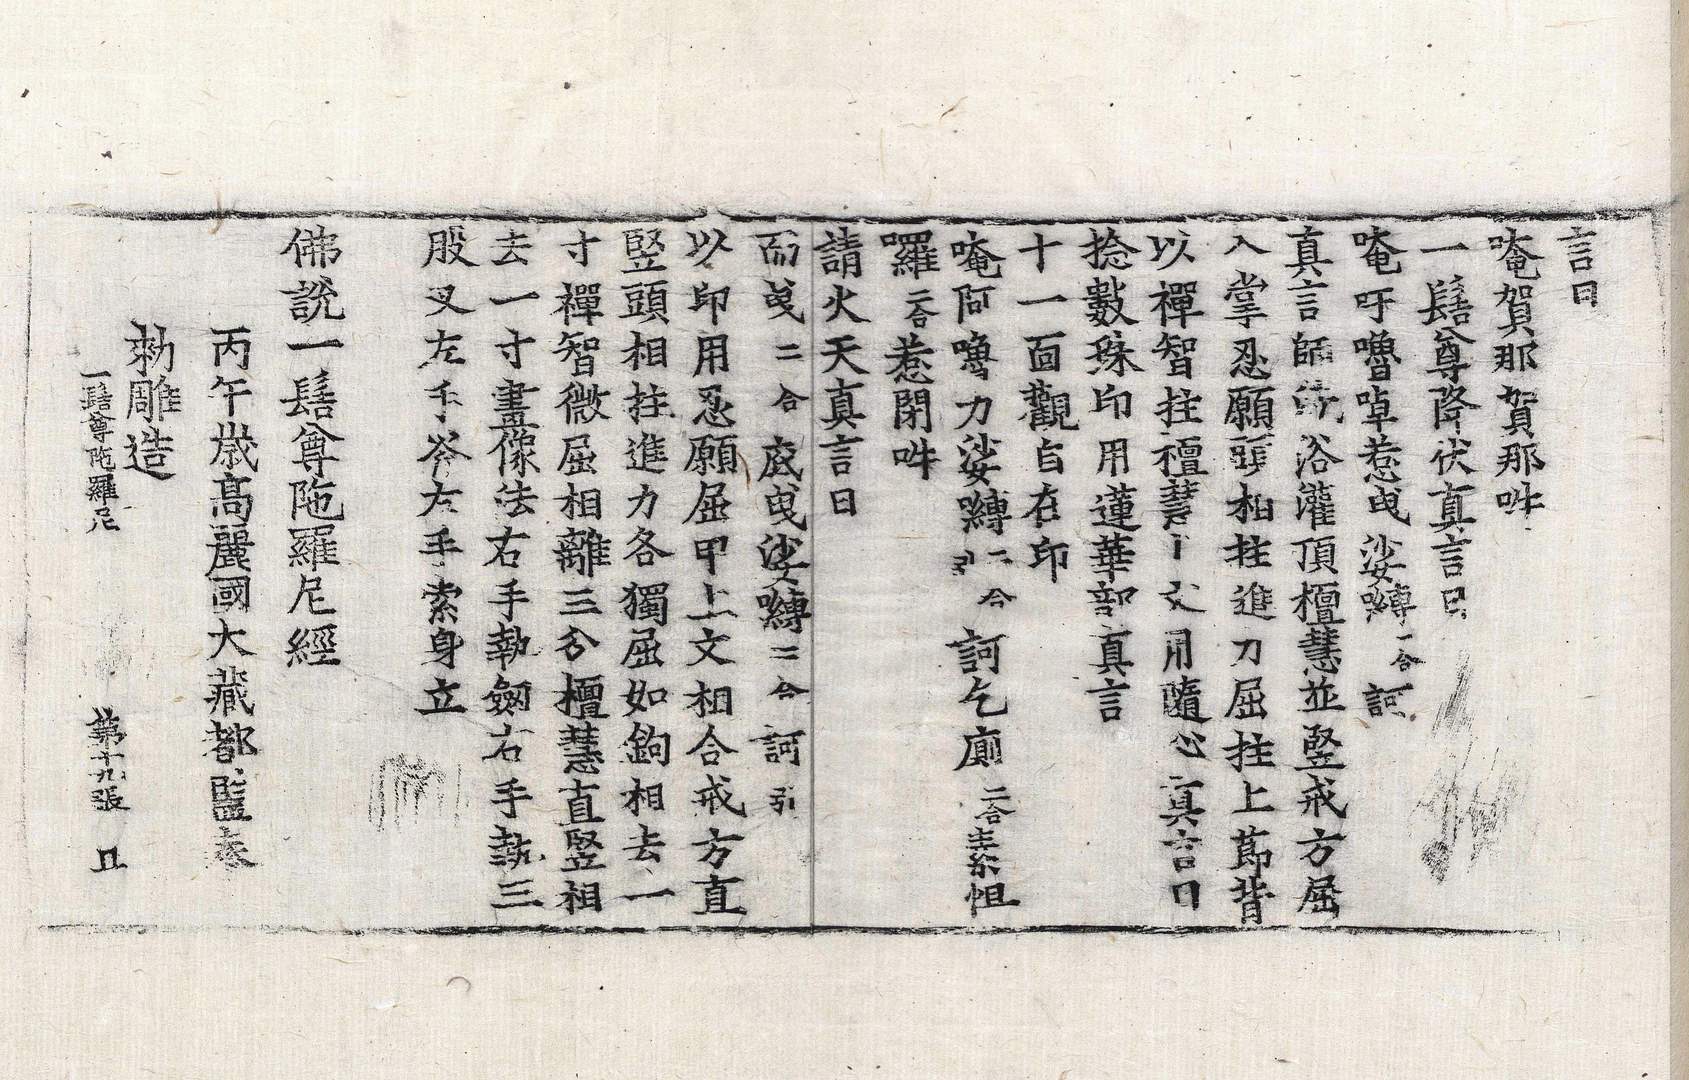 言曰
唵賀那賀那吽
一髻尊降伏真言曰
唵吁嚕啅惹曳娑嚩二合訶
真言師洗浴灌頂檀慧並竪戒方屈
入掌忍願頭相拄進力屈拄上莭背
以禪智拄檀慧丁文用隨心真言曰
捻數珠印用蓮華部真言
十一面觀自在印
唵阿嚕力娑嚩二合引訶乞廁二合素怛
囉二合惹閉吽
請火天真言曰
𠆸曳二合底曳娑嚩二合訶引
以印用忍願屈甲上文相合戒方直
竪頭相拄進力各獨屈如鉤相去一
寸禪智微屈相離三分檀慧直竪相
去一寸畫像法右手執劒右手執三
股叉左手斧左手索身立
佛說一髻尊陁羅尼經
丙午歲高麗國大藏都監奉
勑雕造
一髻尊陁羅尼 第十九張 㠯